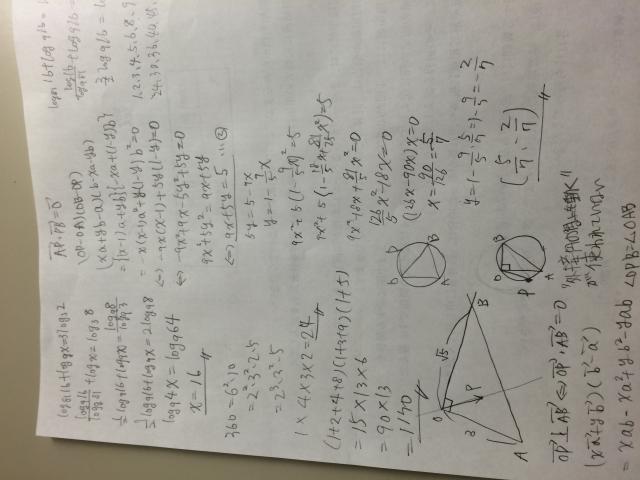 log₈₁16+log₉x=3log₉2
log₉16/log₉81+log₉x=log₉8
½log₉16+log₉x=2log₉8
log₉4x=log₉64
x=16
360=6²×10
=2²·3²·2·5
=2³·3²·5
1×4×3×2=24
(1+2+4+8)(1+3+9)(1+5)
=15×13×6
=90×13
=1170
O
3
√5
P
A
B
OP⊥AB⇔OP·AB=0
(xa+yb)(b-a)
=xab-xa²+yb²-yab
AP·PB=0
(OP-OA)(OB-OP)
(xa+yb-a)(b-xa-yb)
={(x-1)a+yb}{-xa+(1-y)b}
=-x(x-1)a²+y(1-y)b²=0
⇔-9x(x-1)+5y(1-y)=0
⇔-9x²+9x-5y²+5y=0
9x²+5y²=9x+5y
⇔9x+5y=5 …②
5y=5-9x
y=1-9/5x
9x²+5(1-9/5x)²=5
9x²+5(1-18/5x+81/25x²)=5
9x²-18x+81/5x²=0
126/5x²-18x=0
(126x-90x)x=0
x=90/126=5/7
y=1-9/5·5/7=1-9/7=-2/7
(5/7,-2/7)
O
P
A
B
O
P
A
B
∠OPB=∠OAB
log₈₁16+log₉16=
log₉16/log₉81+log₉16=
3/2log₉16=
1,2,3,4,5,6,8,9
24,30,36,40,45,